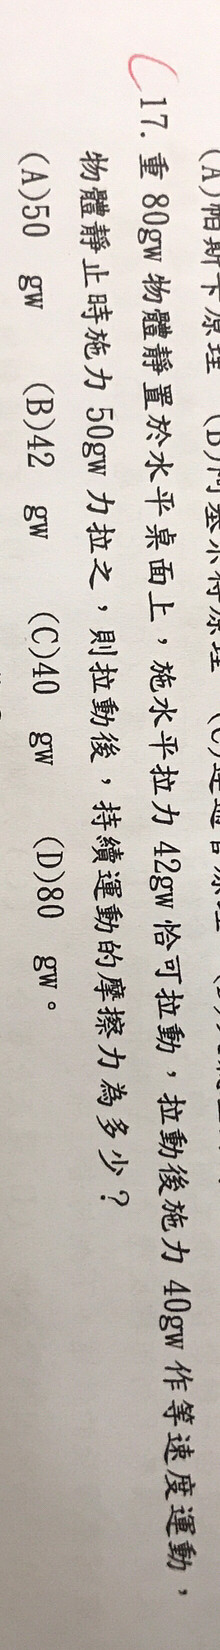 17. 重 80gw 物體靜置於水平桌面上，施水平拉力 42gw 恰可拉動，拉動後施力 40gw 作等速度運動，
物體靜止時施力 50gw 力拉之，則拉動後，持續運動的摩擦力為多少？
(A)50 gw (B)42 gw (C)40 gw (D)80 gw。